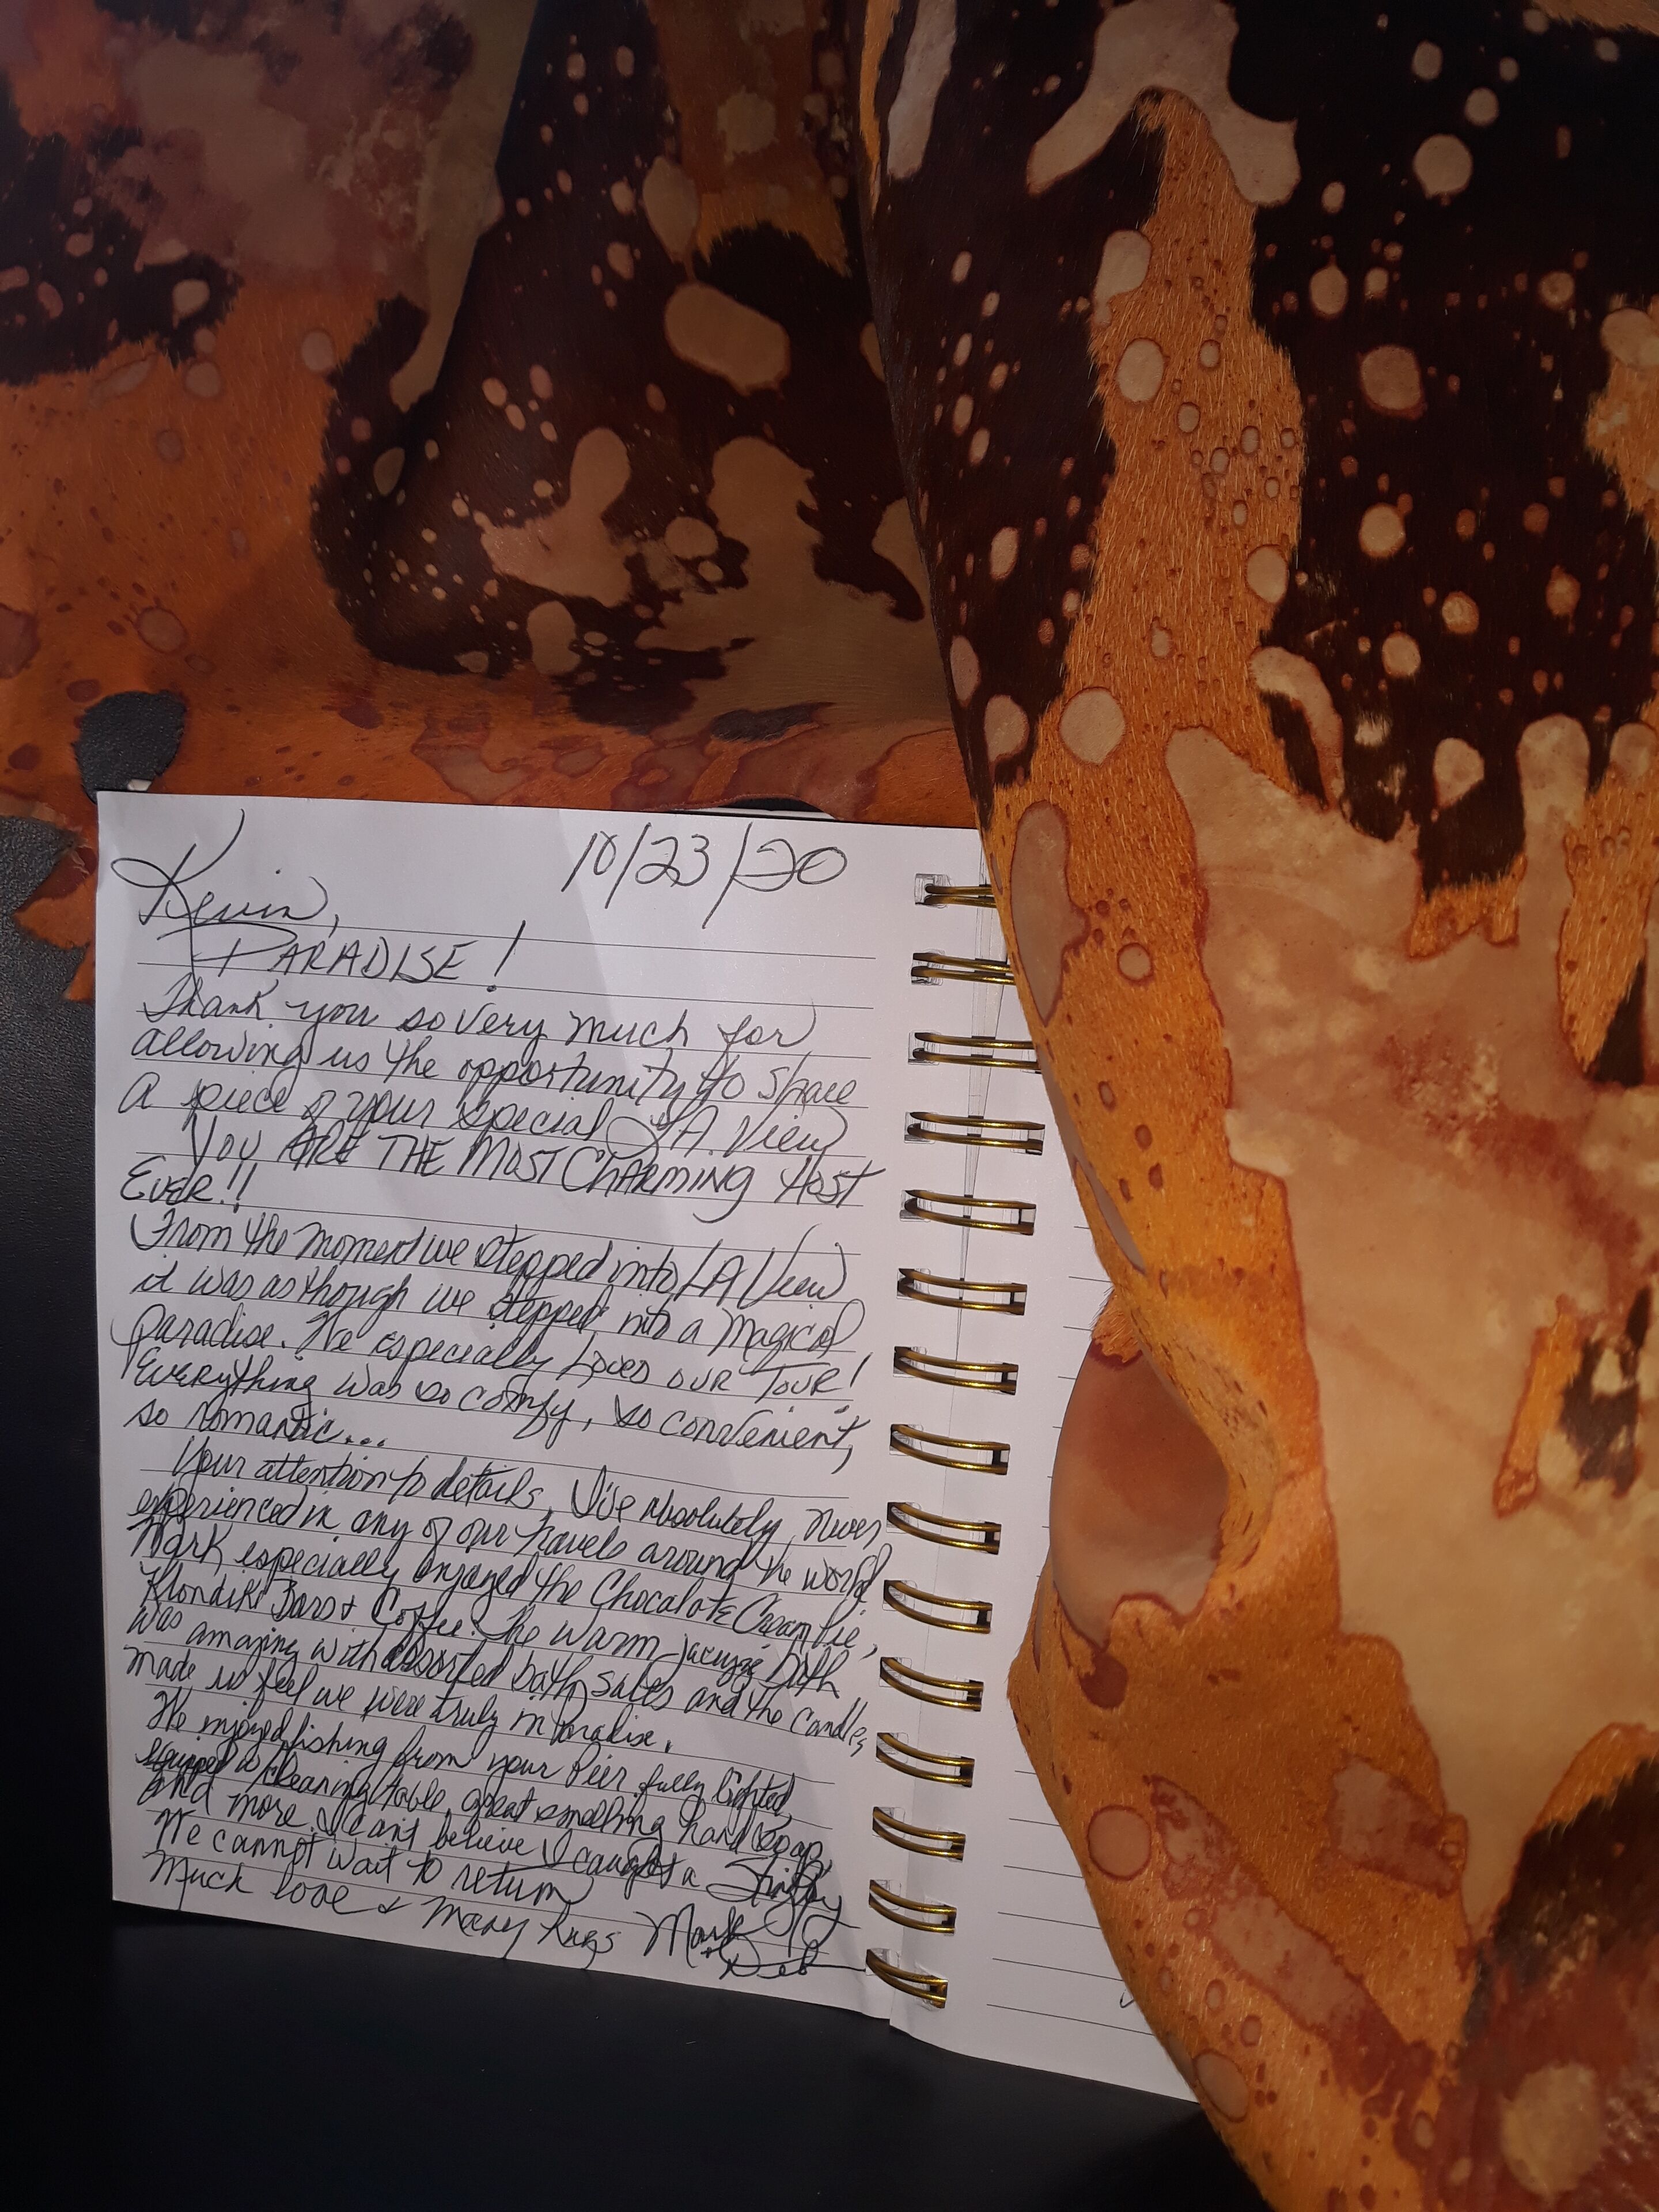 10/23/20
Kevin,
PARADISE!
Thank you so very much for
allowing us the opportunity to share
A piece of your special LA View
YOU ARE THE MOST CHARMING HOST
EVER!!
From the moment we stepped into LA View
it was as though we stepped into a magical
paradise. We especially loved our Tour!
Everything was so comfy, so convenient,
so romantic...
Your attention to details, I've absolutely never
experienced in any of our travels around the world
Mark especially enjoyed the Chocolate Cream Pie,
Klondike Bars & Coffee. The warm jacuzzi bath
was amazing with assorted bath salts and the candles
made us feel we were truly in Paradise.
We enjoyed fishing from your Pier fully lighted,
equipped w/ cleaning table, great smelling hand soap,
and more. I can't believe I caught a Sting Ray
We cannot wait to return
Much love & Many hugs Mark
& Deb